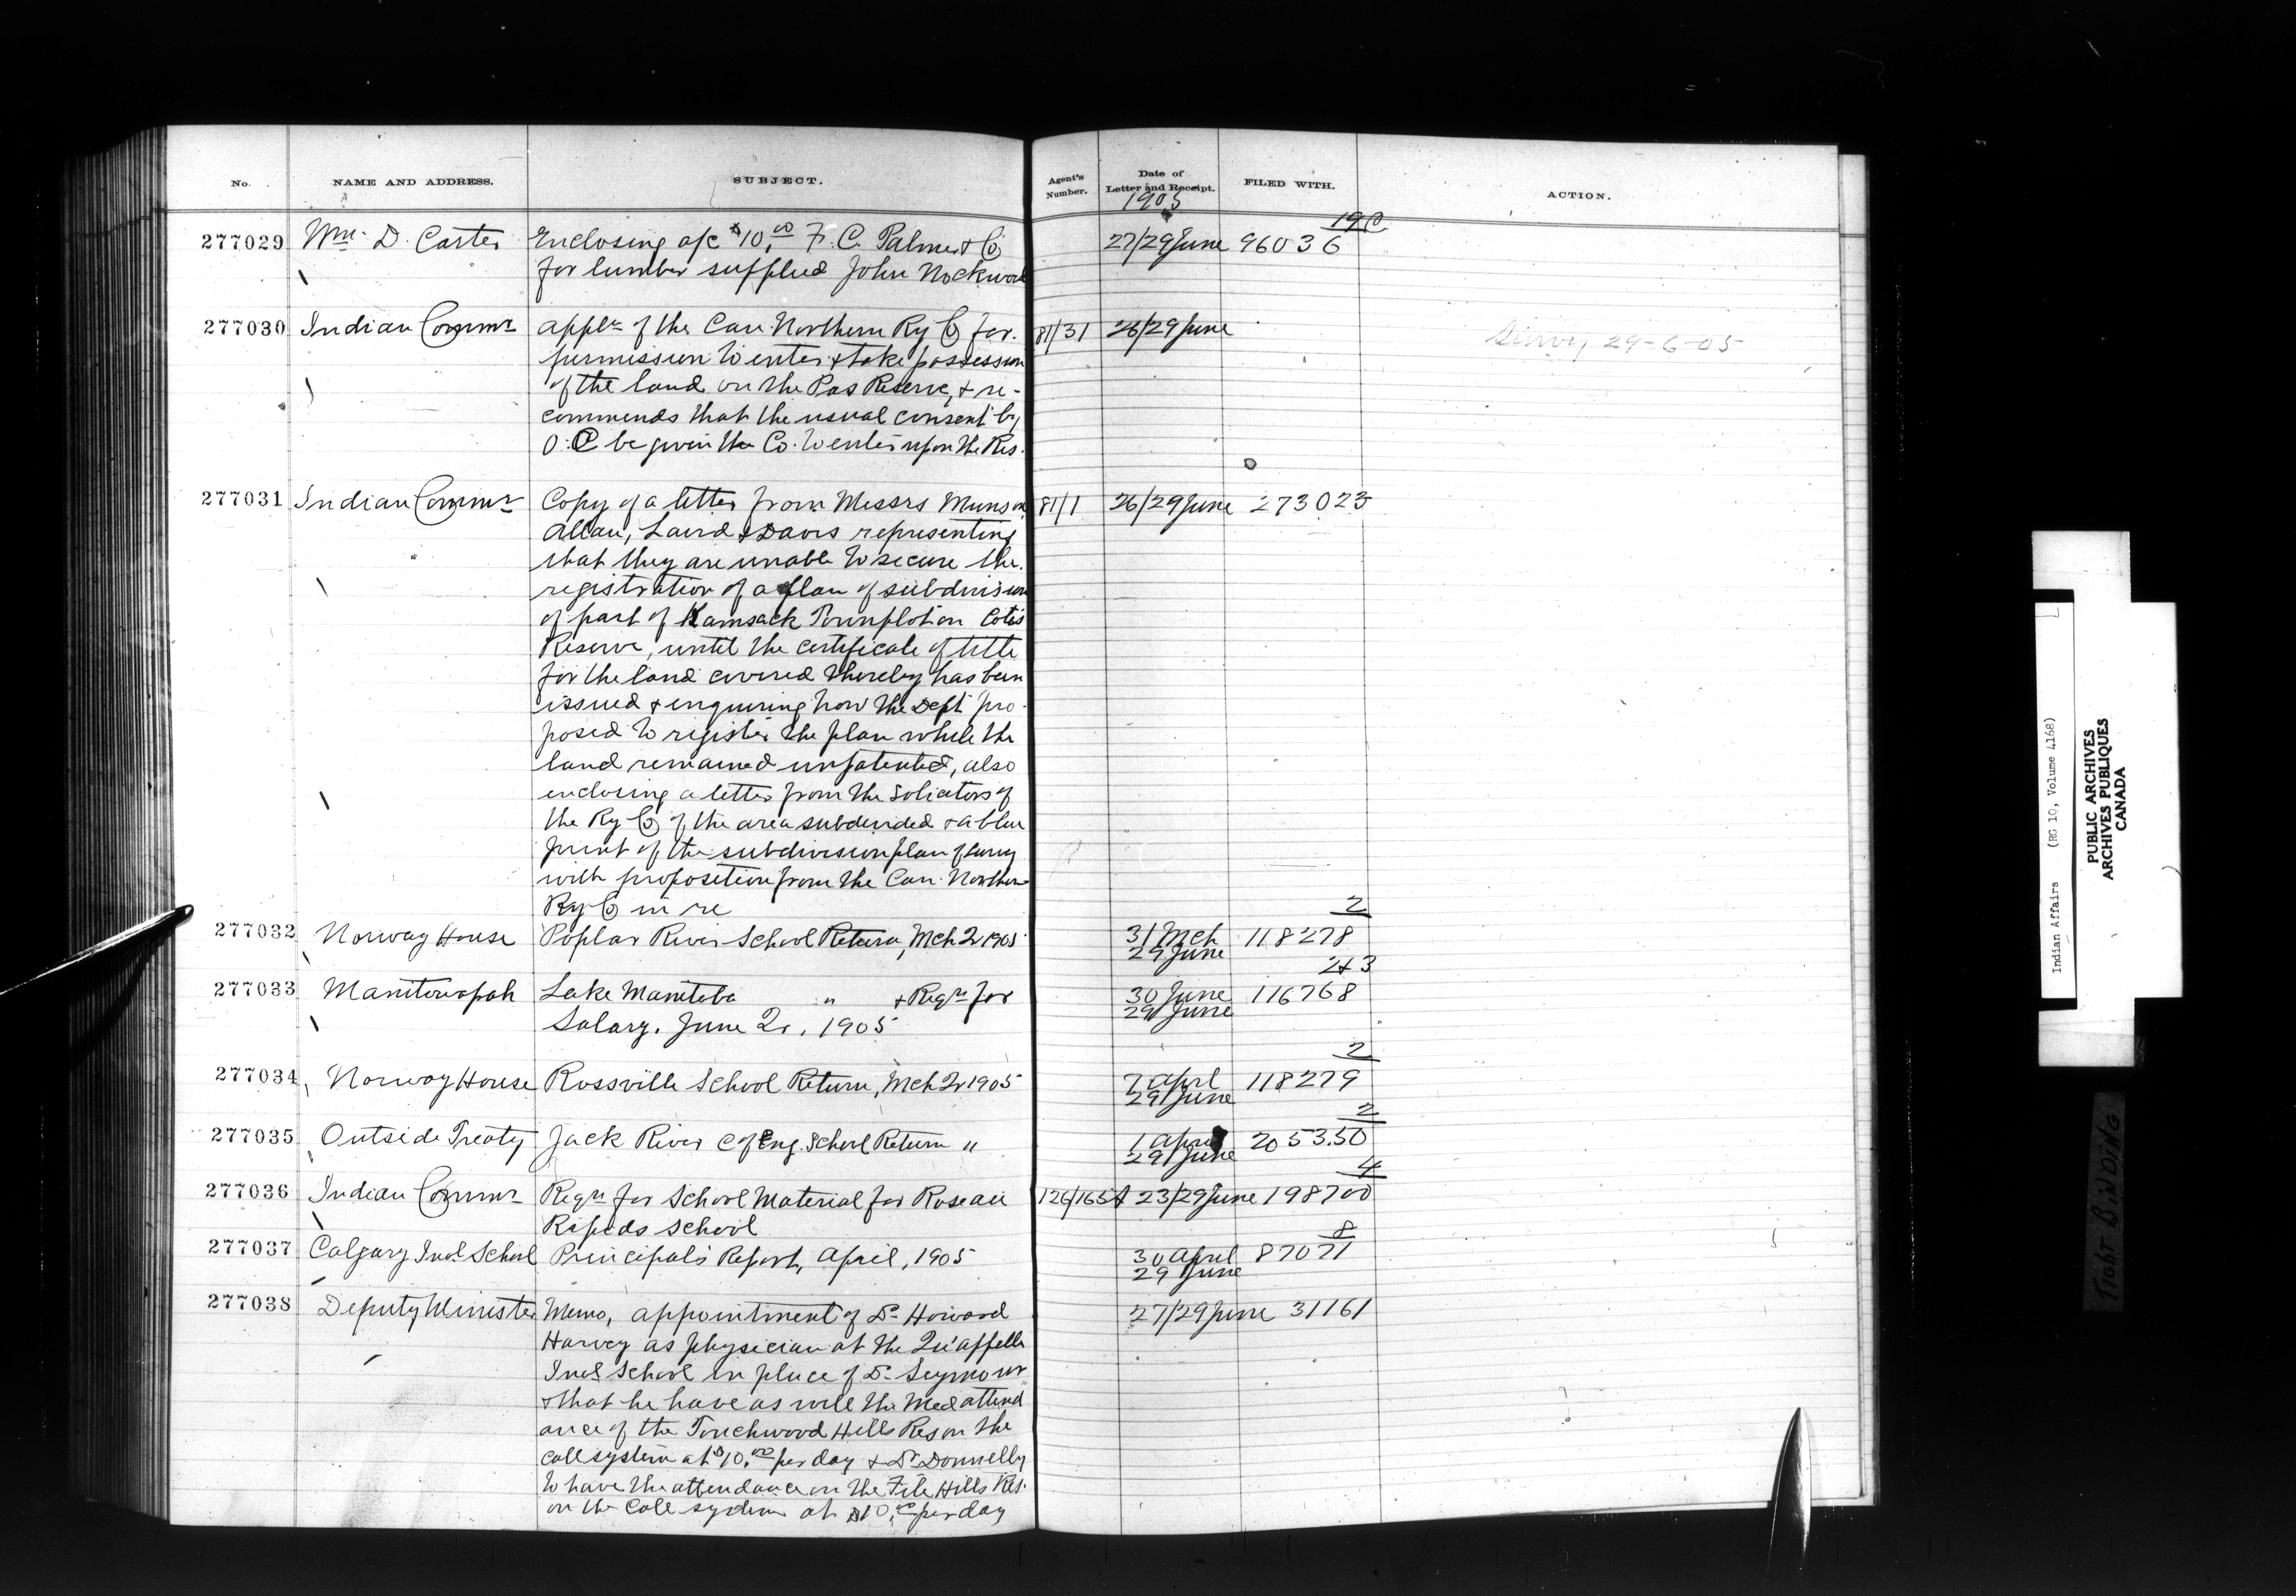 No. NAME AND ADDRESS. SUBJECT. Agent's Number. Date of Letter and Receipt. FILED WITH. ACTION.
1905
19 C
277029 Wm. D. Carter Enclosing a/c $10.00 F. C. Palmer & Co 27/29 June 96036
for lumber supplied John Nockwood
277030 Indian Commr Appln of the Can. Northern Ry Co for 81/31 26/29 June Survey 29-6-05
permission to enter & take possession
of the land on the Pas Reserve, & re-
commends that the usual consent by
O.C be given the Co. to enter upon the Res.
277031 Indian Commr Copy of a letter from Messrs Munson 81/1 26/29 June 273023
Allan, Laird & Davis representing
that they are unable to secure the
registration of a plan of subdivision
of part of Kamsack Townplot on Cote's
Reserve, until the certificate of title
for the land covered thereby has been
issued & enquiring how the Dept pro-
posed to register the plan while the
land remained unpatented, also
enclosing a letter from the Solicitors of
the Ry Co of the area subdivided & a blue
print of the subdivision plan of survey
with proposition from the Can. Northern
Ry Co in re
2
277032 Norway House Poplar River School Return, Mch Qr 1905 31 Mch 118278
29 June
2+3
277033 Manitowapah Lake Manitoba " & Reqn for 30 June 116768
Salary. June Qr, 1905 29 June
2
277034 Norway House Rossville School Return, Mch Qr 1905 7 April 118279
29 June
2
277035 Outside Treaty Jack River C of Eng. School Return " 1 April 205350
29 June
4
277036 Indian Commr Reqn for School Material for Roseau 126/165A 23/29 June 198700
Rapids School
8
277037 Calgary Indl School Principal's Report, April, 1905 30 April 87071
29 June
277038 Deputy Minister Memo, appointment of Dr Howard 27/29 June 31161
Harvey as physician at the Qu'appelle
Indl School in place of Dr Seymour
& that he have as well the Med attend
ance of the Touchwood Hills Res on the
call system at $10.00 per day & Dr Donnelly
to have the attendance on the File Hills Res.
on the call system at $10.00 per day
Indian Affairs (RG 10, Volume 4168)
PUBLIC ARCHIVES
ARCHIVES PUBLIQUES
CANADA
TIGHT BINDING